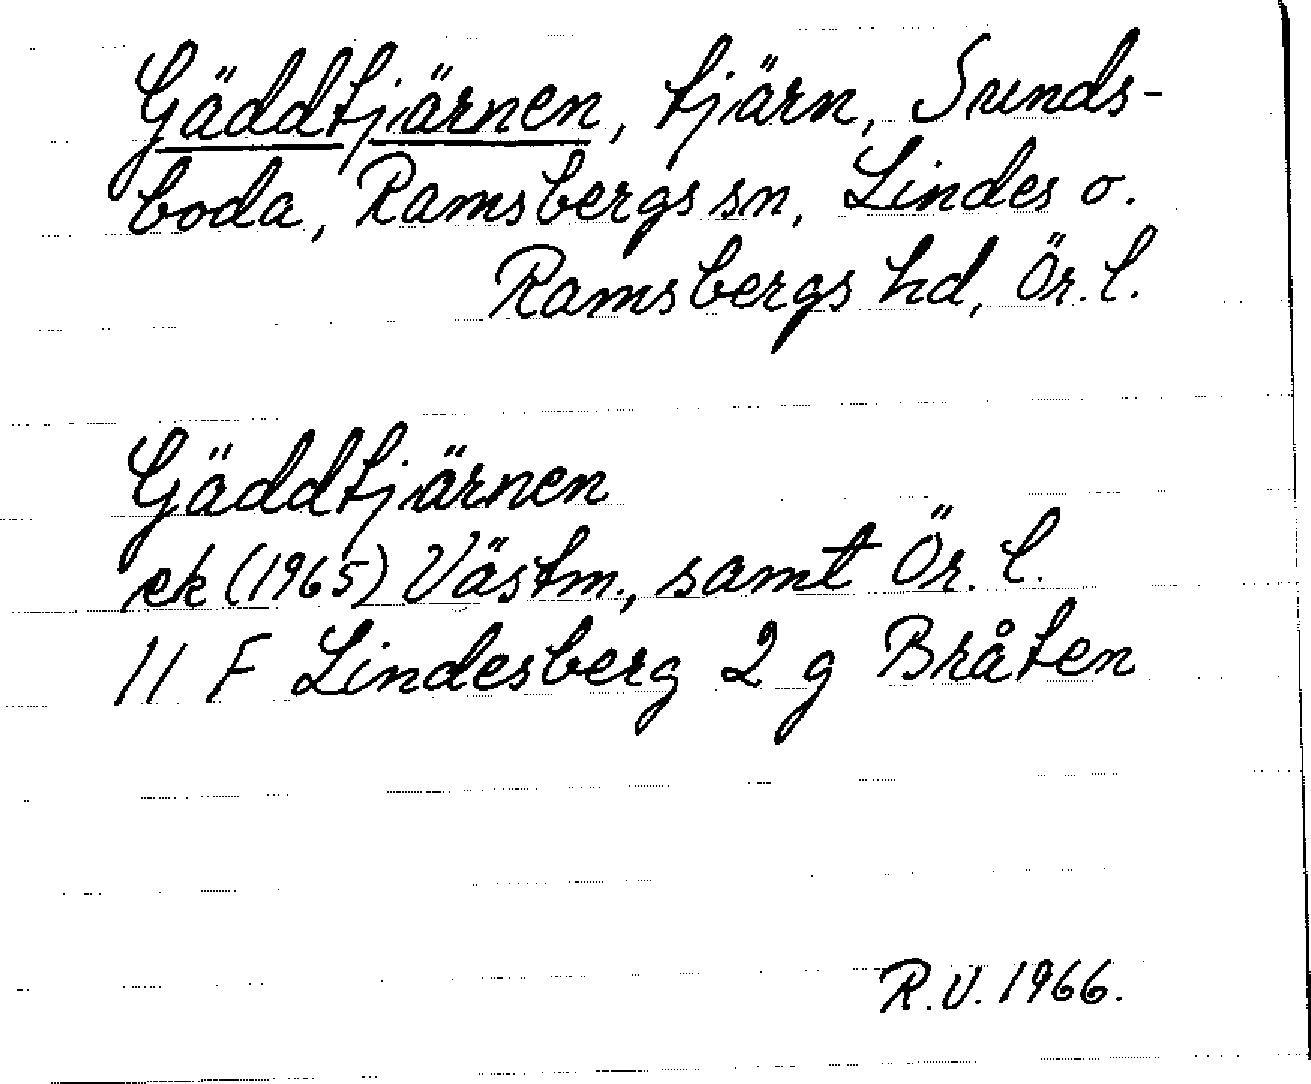 Gäddtjärnen, tjärn, Sunds-
boda, Ramsbergs sn, Lindes o.
Ramsbergs hd, Ör. l.
Gäddtjärnen
ek (1965) Västm., samt Ör. l.
11 F Lindesberg 2 g Bråten
R.V. 1966.